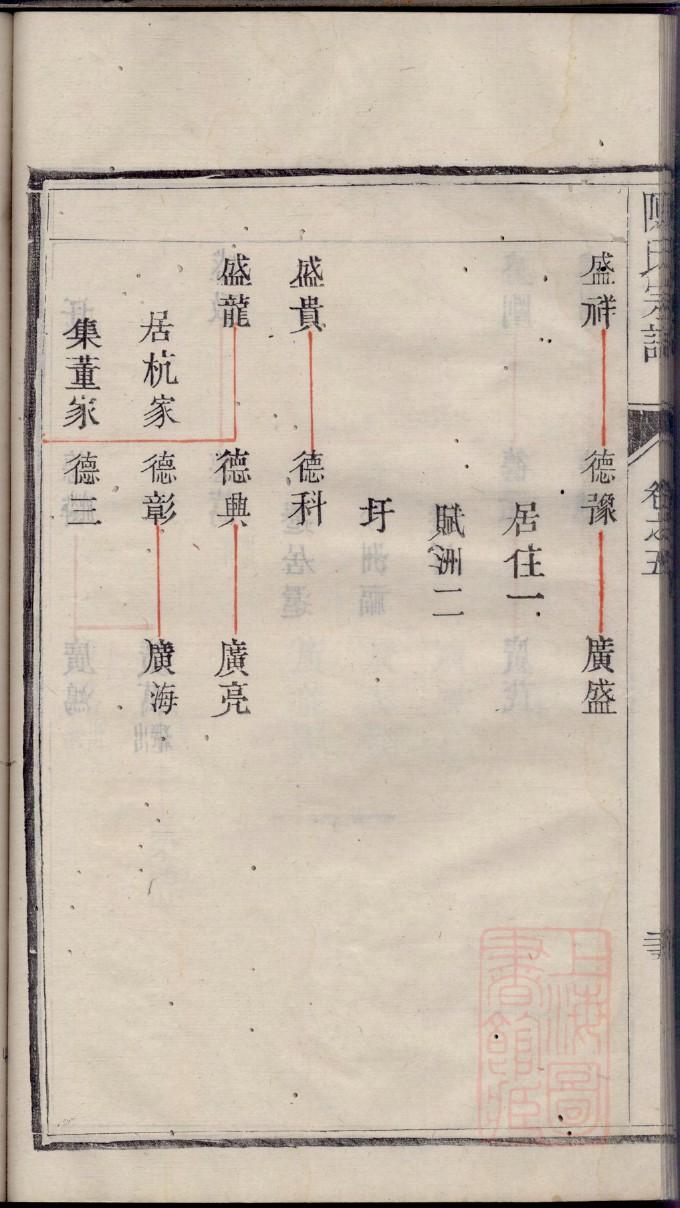 陳氏宗譜
卷之五
盛祥 德豫 廣盛
居住一
賦洲二
圩
盛貴 德科
盛龍 德典 廣亮
居杭家 德彰 廣海
集董家 德三
上海圖書館藏